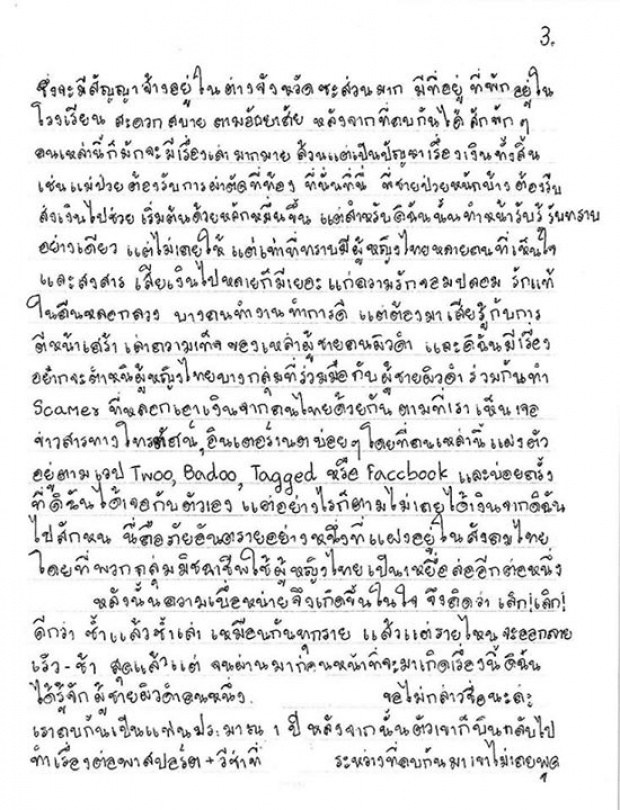 3.
ซึ่งจะมีสัญญาจ้างอยู่ในต่างจังหวัดซะส่วนมาก มีที่อยู่ ที่พักอยู่ใน
โรงเรียน สะดวกสบาย ตามอัธยาศัย หลังจากที่คบกันได้สักพักๆ
คนเหล่านี้ก็มักจะมีเรื่องเล่ามากมาย ล้วนแต่เป็นปัญหาเรื่องเงินทั้งสิ้น
เช่นแม่ป่วย ต้องรับการผ่าตัดที่ท้อง ที่นั่นที่นี่ พี่ชายป่วยหนักบ้าง ต้องรีบ
ส่งเงินไปช่วย เริ่มต้นด้วยหลักหมื่นขึ้น แต่สำหรับดิฉันนั้นทำหน้ารับรู้ รับทราบ
อย่างเดียว แต่ไม่เคยให้ แต่เท่าที่ทราบมีผู้หญิงไทยหลายคนที่เห็นใจ
และสงสาร เสียเงินไปหลายก็มีเยอะ แก่ความรักจอมปลอม รักแท้
ในคืนหลอกลวง บางคนทำงานทำการดี แต่ต้องมาเสียรู้กับการ
ตีหน้าเศร้า เล่าความเท็จ ของเหล่าผู้ชายคนผิวดำ และดิฉันมีเรื่อง
อย่ากจะตำหนิผู้หญิงไทยบางกลุ่มที่ร่วมมือกับผู้ชายผิวดำ ร่วมกันทำ
Scamer ที่หลอกเอาเงินจากคนไทยด้วยกัน ตามที่เรา เห็นเจอ
ข่าวสารทางโทรทัศน์, อินเตอร์เนตบ่อยๆ โดยที่คนเหล่านี้แฝงตัว
อยู่ตามเวป Twoo, Badoo, Tagged หรือ Faccbook และบ่อยครั้ง
ที่ดิฉันได้เจอกับตัวเอง แต่อย่างไรก็ตามไม่เคยได้เงินจากดิฉัน
ไปสักหน นี่คือภัยอันตรายอย่างหนึ่งที่แฝงอยู่ในสังคมไทย
โดยที่พวกกลุ่มมิชฉาชีพใช้ผู้หญิงไทยเป็นเหยื่อล่ออีกต่อหนึ่ง
หลังนั้นความเบื่อหน่ายจึงเกิดขึ้นในใจ จึงคิดว่า เลิก! เลิก!
ดีกว่า ซ้ำแล้วซ้ำเล่า เหมือนกันทุกราย แล้วแต่รายไหนจะออกลาย
เร็ว - ช้า สุดแล้วแต่ จนผ่านมาก่อนหน้าที่จะมาเกิดเรื่องนี้ ดิฉัน
ได้รู้จักผู้ชายผิวดำคนหนึ่ง. ขอไม่กล่าวชื่อนะค่ะ
เราคบกันเป็นแฟนประมาณ 1 ปี หลังจากนั้นตัวเขาก็บินกลับไป
ทำเรื่องต่อพาสปอร์ต + วีซ่าที่ ระหว่างที่คบกันมาเขาไม่เคยพูด